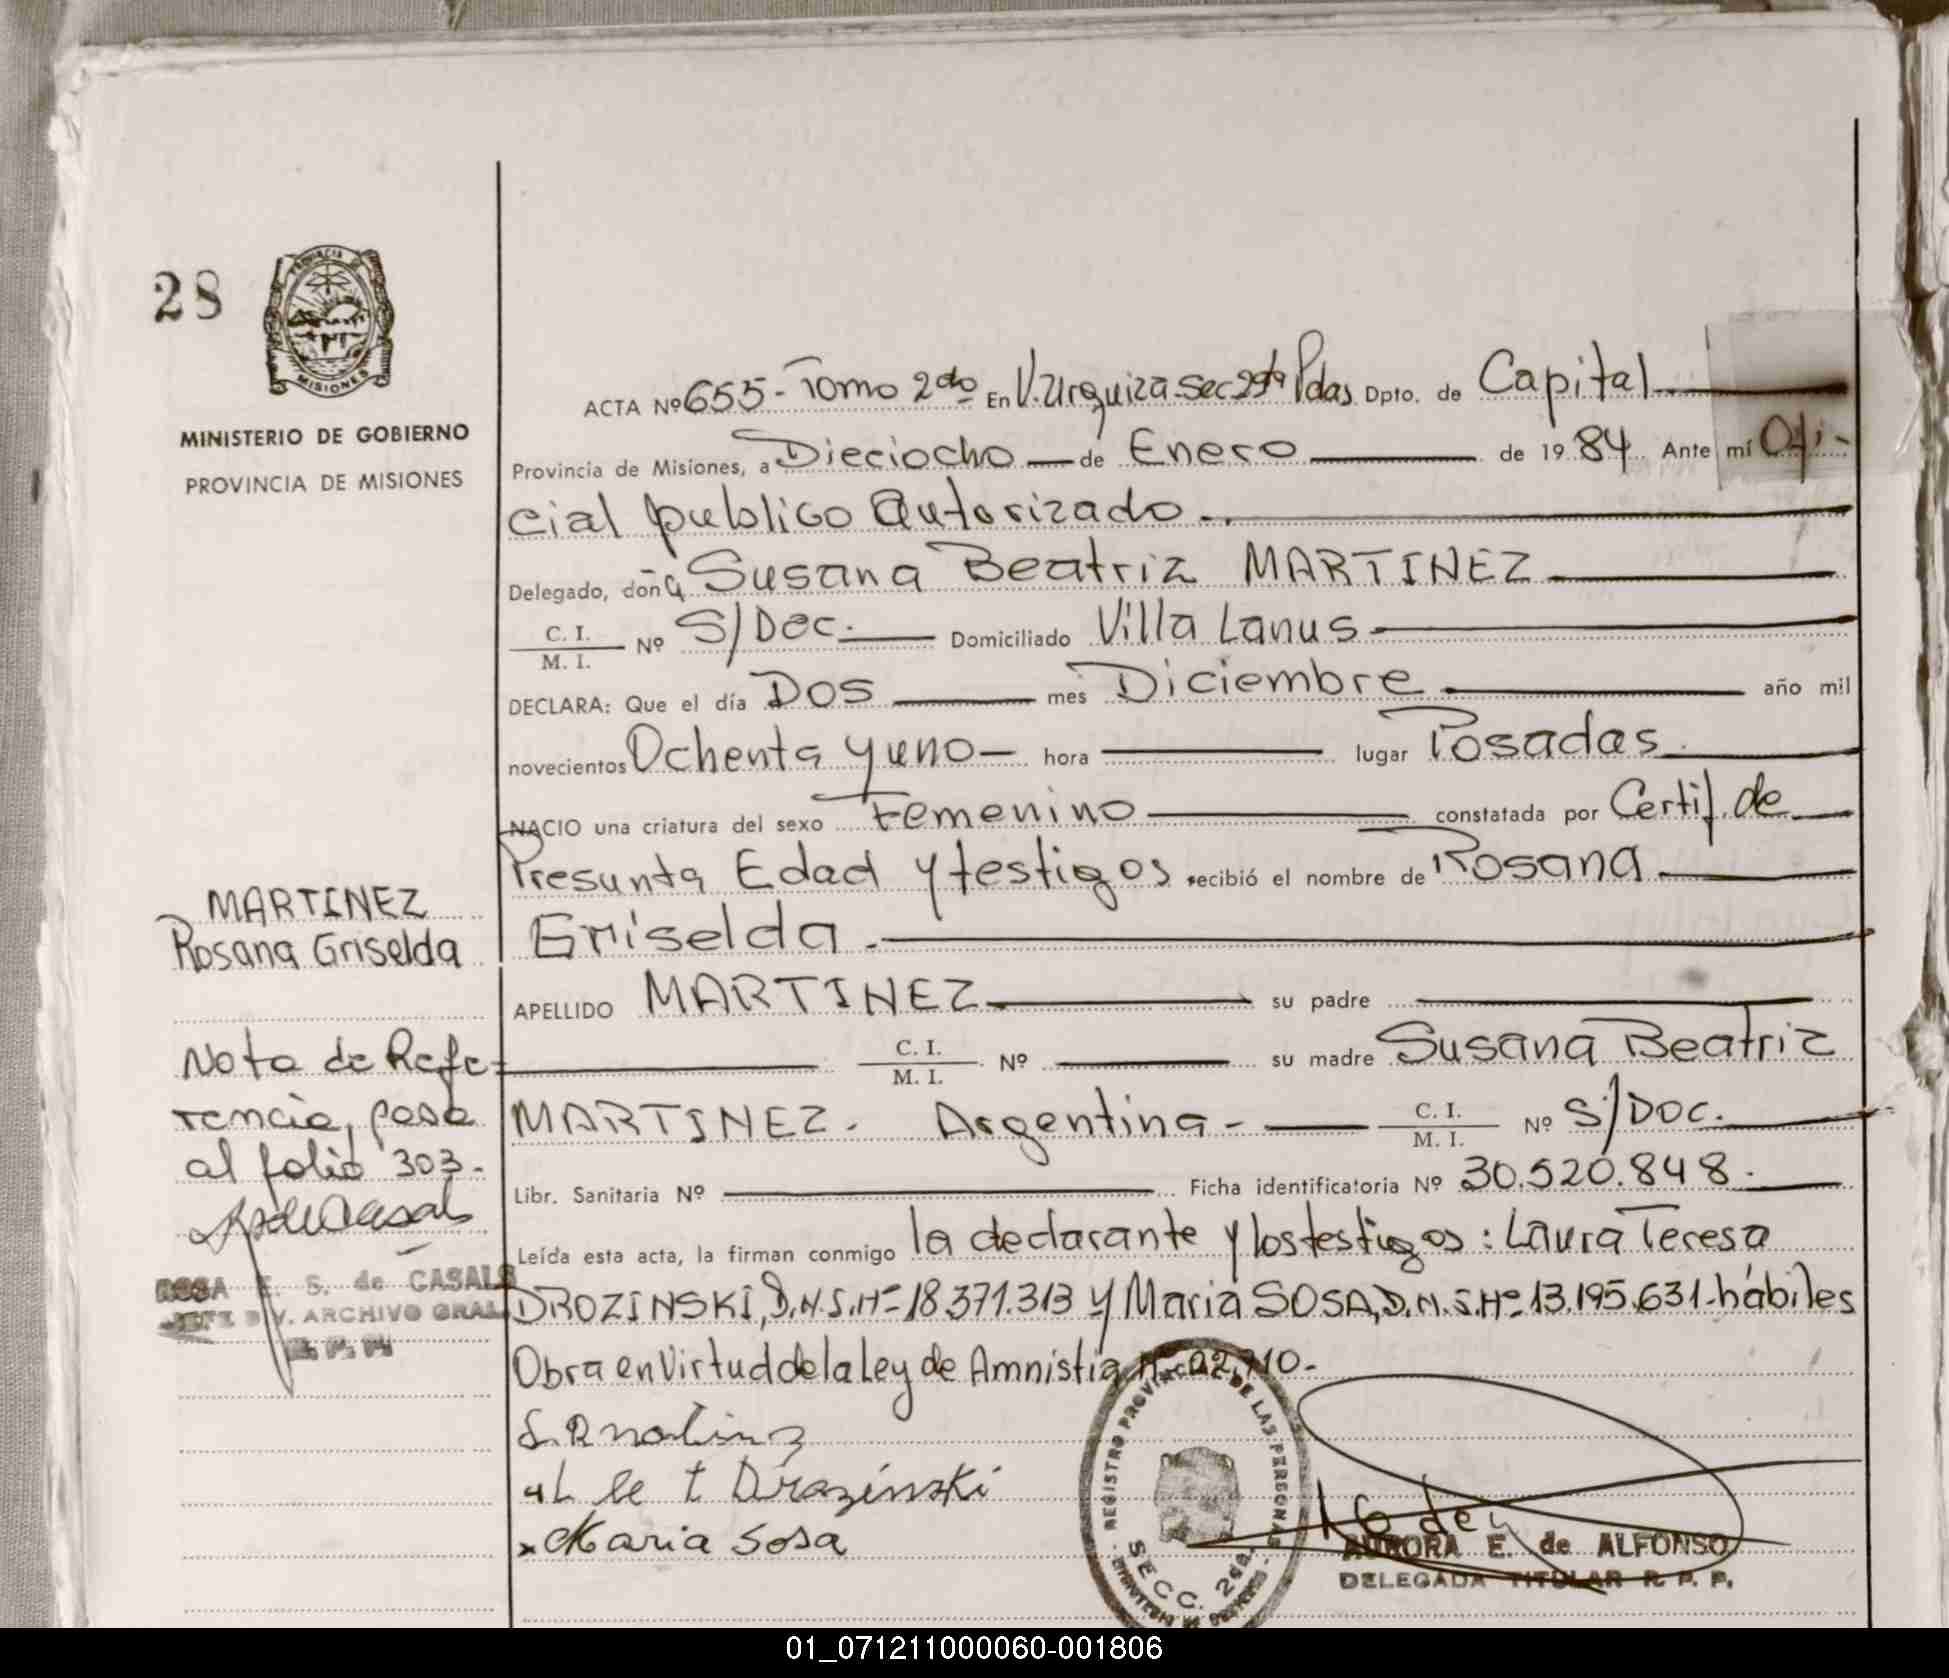 28
PROVINCIA DE
MISIONES
MINISTERIO DE GOBIERNO
PROVINCIA DE MISIONES
ACTA Nº 655 - Tomo 2do En V. Urquiza - Sec 2da Pdas Dpto. de Capital
Provincia de Misiones, a Dieciocho de Enero de 1984 Ante mí Ofi-
cial publico Autorizado
Delegado, doña Susana Beatriz MARTINEZ
C. I.
M. I. Nº S/Doc. Domiciliado Villa Lanus
DECLARA: Que el día Dos mes Diciembre año mil
novecientos Ochenta y uno hora lugar Posadas
NACIO una criatura del sexo Femenino constatada por Certif. de
Presunta Edad y testigos recibió el nombre de Rosana
Griselda
APELLIDO MARTINEZ su padre
C. I.
M. I. Nº su madre Susana Beatriz
MARTINEZ. Argentina - C. I.
M. I. Nº S/Doc.
Libr. Sanitaria Nº Ficha identificatoria Nº 30.520.848.
Leída esta acta, la firman conmigo la declarante y los testigos: Laura Teresa
DROZINSKI, D.N.I.Nº 18.371.313 y Maria SOSA, D.N.I.Nº 13.195.631 - hábiles
Obra en Virtud de la Ley de Amnistia Nº 22.710.-
MARTINEZ
Rosana Griselda
Nota de Refe-
rencia, pasa
al folio 303.-
ROSA E. S. de CASALS
JEFE DIV. ARCHIVO GRAL
R. P. P.
Drazinski
Maria Sosa
REGISTRO PROVINCIAL DE LAS PERSONAS
SECC. 2da.
AURORA E. de ALFONSO
DELEGADA TITULAR R. P. P.
01_071211000060-001806